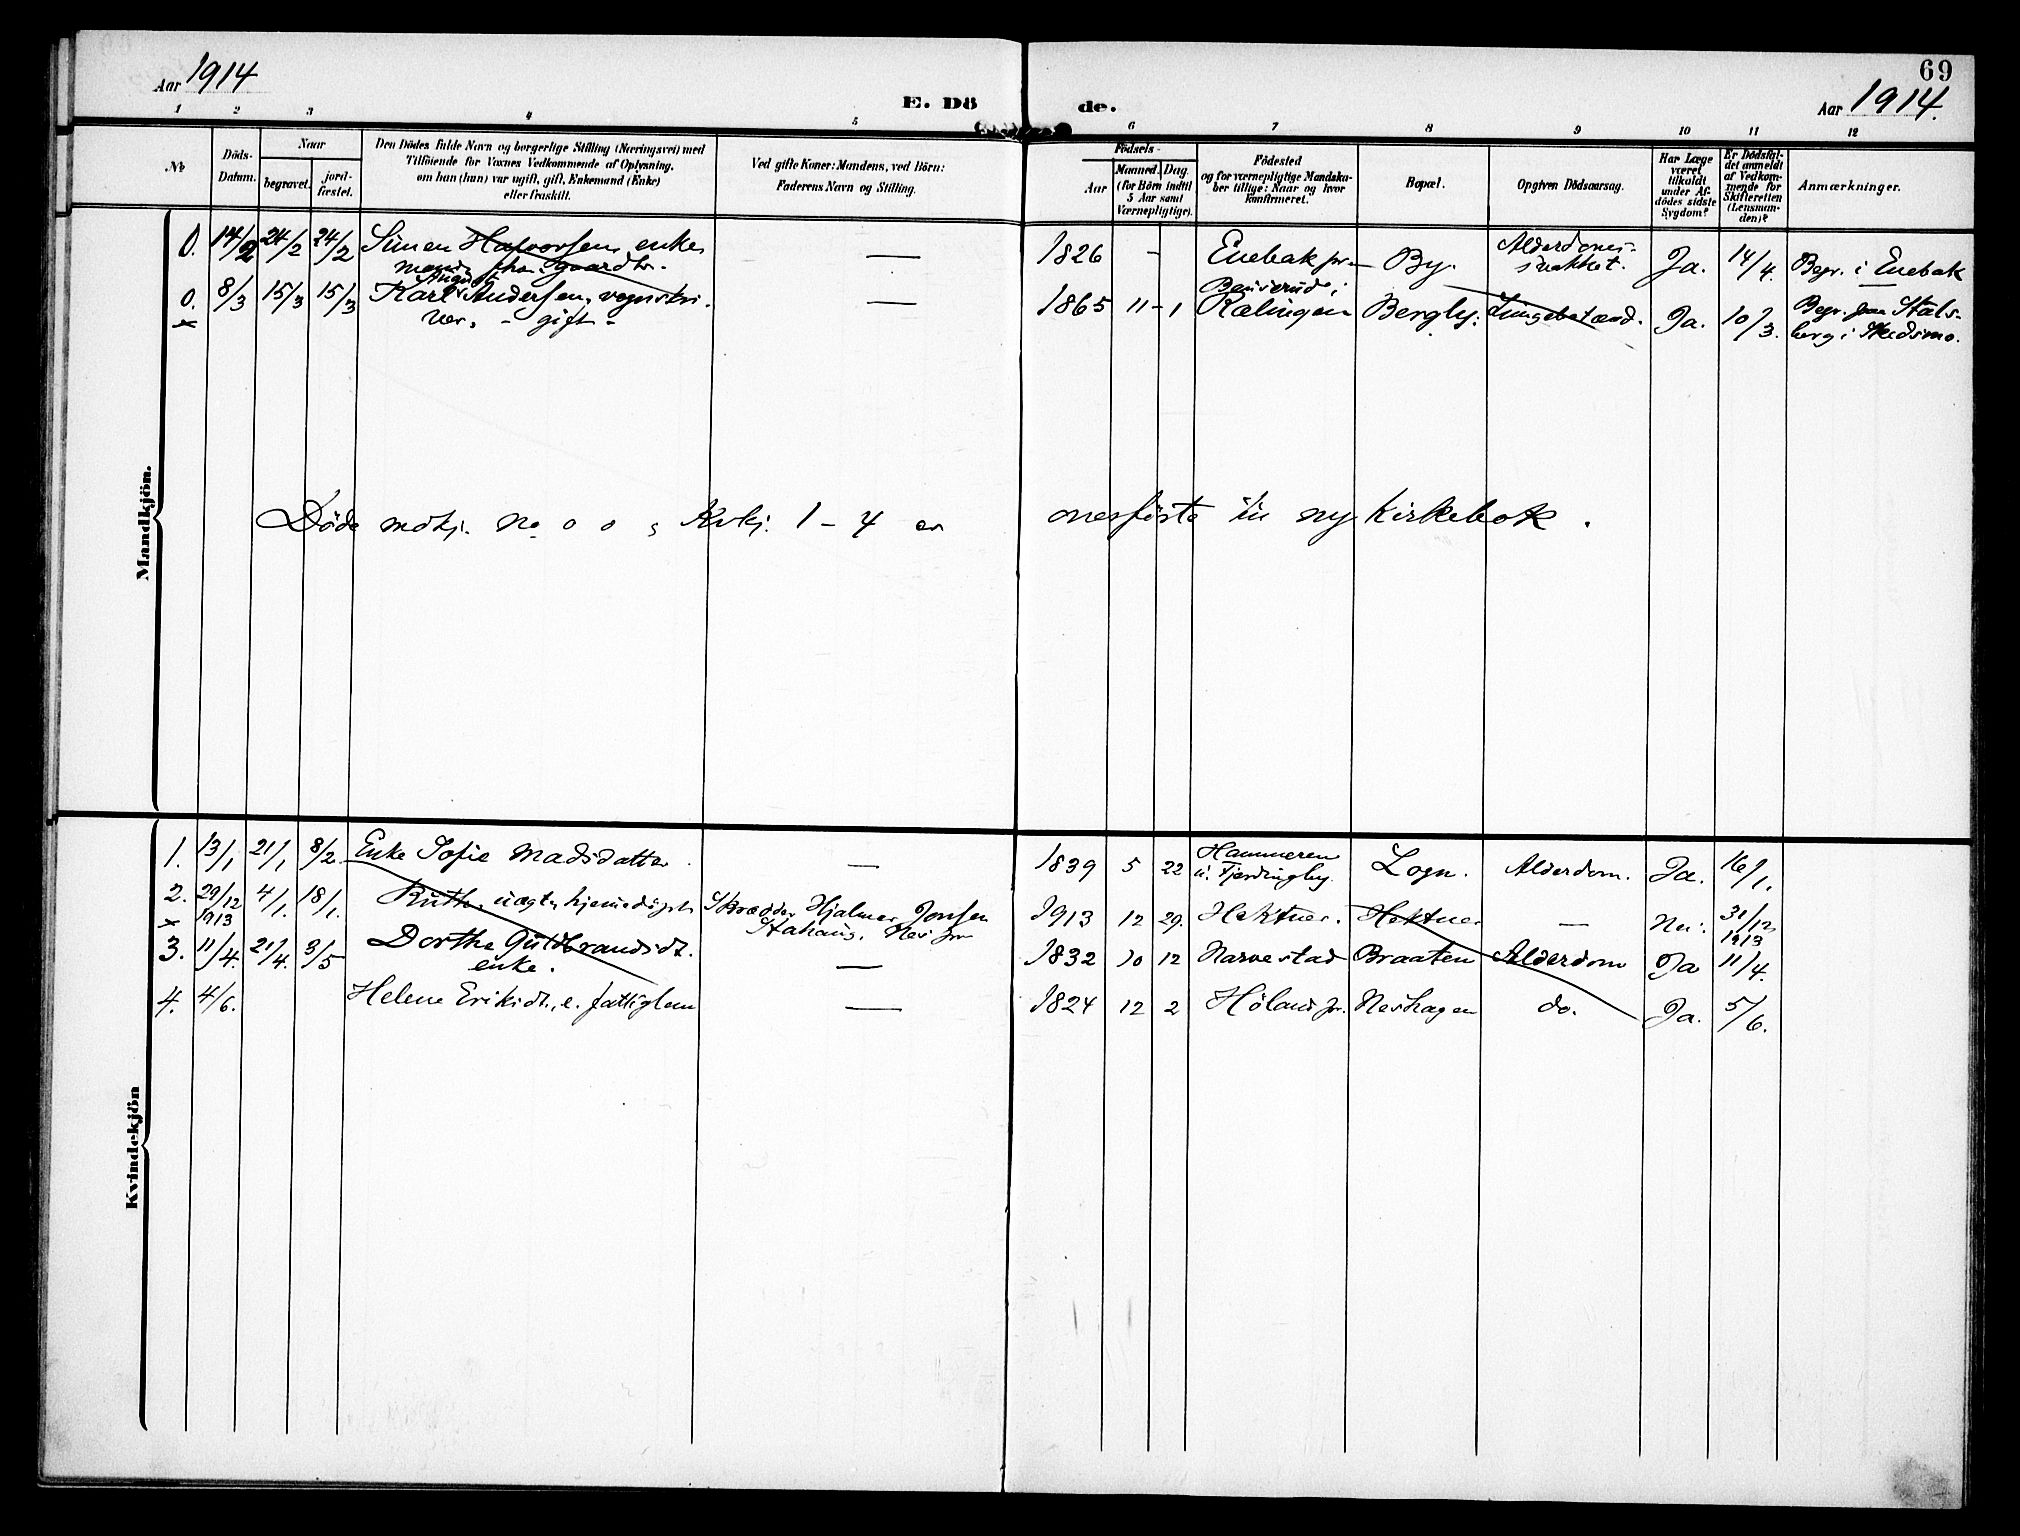 69
Aar 1914
E. Dö
de.
Aar 1914.
1 2 3 4 5 6 7 8 9 10 11 12
No
Döds-
Datum.
Naar
begravet.
jord-
fæstet.
Den Dödes fulde Navn og borgerlige Stilling (Næringsvei) med
Tilföiende for Voxnes Vedkommende af Oplysning,
om han (hun) var ugift, gift, Enkemand (Enke)
eller fraskilt.
Ved gifte Koner: Mandens, ved Börn:
Faderens Navn og Stilling.
Födsels-
Aar
Maaned. Dag
(for Börn indtil
5 Aar samt
Værnepligtige).
Födested
og for værnepligtige Mandska-
ber tillige: Naar og hvor
konfirmeret.
Bopæl.
Opgiven Dödsaarsag.
Har Læge
været
tilkaldt
under Af-
dödes sidste
Sygdom?
Er Dödsfal-
det anmeldt
af Vedkom-
mende for
Skifteretten
(Lensman-
den)?
Anmærkninger.
Mandkjön.
0. 14/2 24/2 24/2 Simen Halvorsen, enke — 1826 - Enebak pr. By. Alderdoms-
svakhet. Ja. 14/4. Begr. i Enebak
0. 8/3 15/3 15/3 Karl August Andersen, vognskri — 1865 11 - 1 Rælingen Bergly. Lungebetænd. Ja. 10/3. Begr. paa Stals-
x ver. - gift - berg i Skedsmo.
Döde mdkj. No 0 0, Kvkj. 1 - 4 er overförte til ny Kirkebok.
Kvindekjön
1. 13/1 21/1 8/2 Enke Sofie Madsdatter. — 1839 5 22 Hammeren
u. Fjerdingby. Logn. Alderdom. Ja. 16/1.
2. 29/12 1913 4/1. 18/1. Ruth, uægte, hjemmedöpt Skrædder Hjalmar Jonsen 1913 12 29. Hektner. Hektner — Nei. 31/12 1913
x
3. 11/4. 21/4. 3/5 Dorthe Guldbrandsdt.
enke. — 1832 10 12 Narvestad Braaten Alderdom Ja 11/4.
4. 4/6. Helene Eriksdt., e. fattiglem — 1824 12 2 Höland pr. Neshagen do. Ja. 5/6.